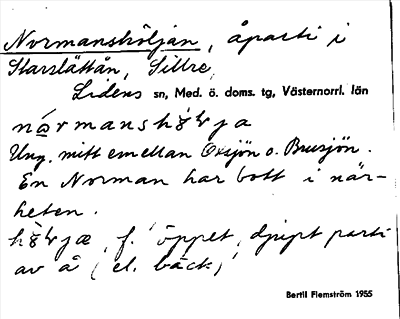 Normanshöljan, åparti i
Starrlåttån, Sillre,
Lidens sn, Med. ö. doms. tg, Västernorrl. län
Ung. mitt emellan Oxsjön o. Brusjön.
En Norman har bott i när-
heten.
f. öppet, djupt parti
av å (el. bäck)
Bertil Flemström 1955